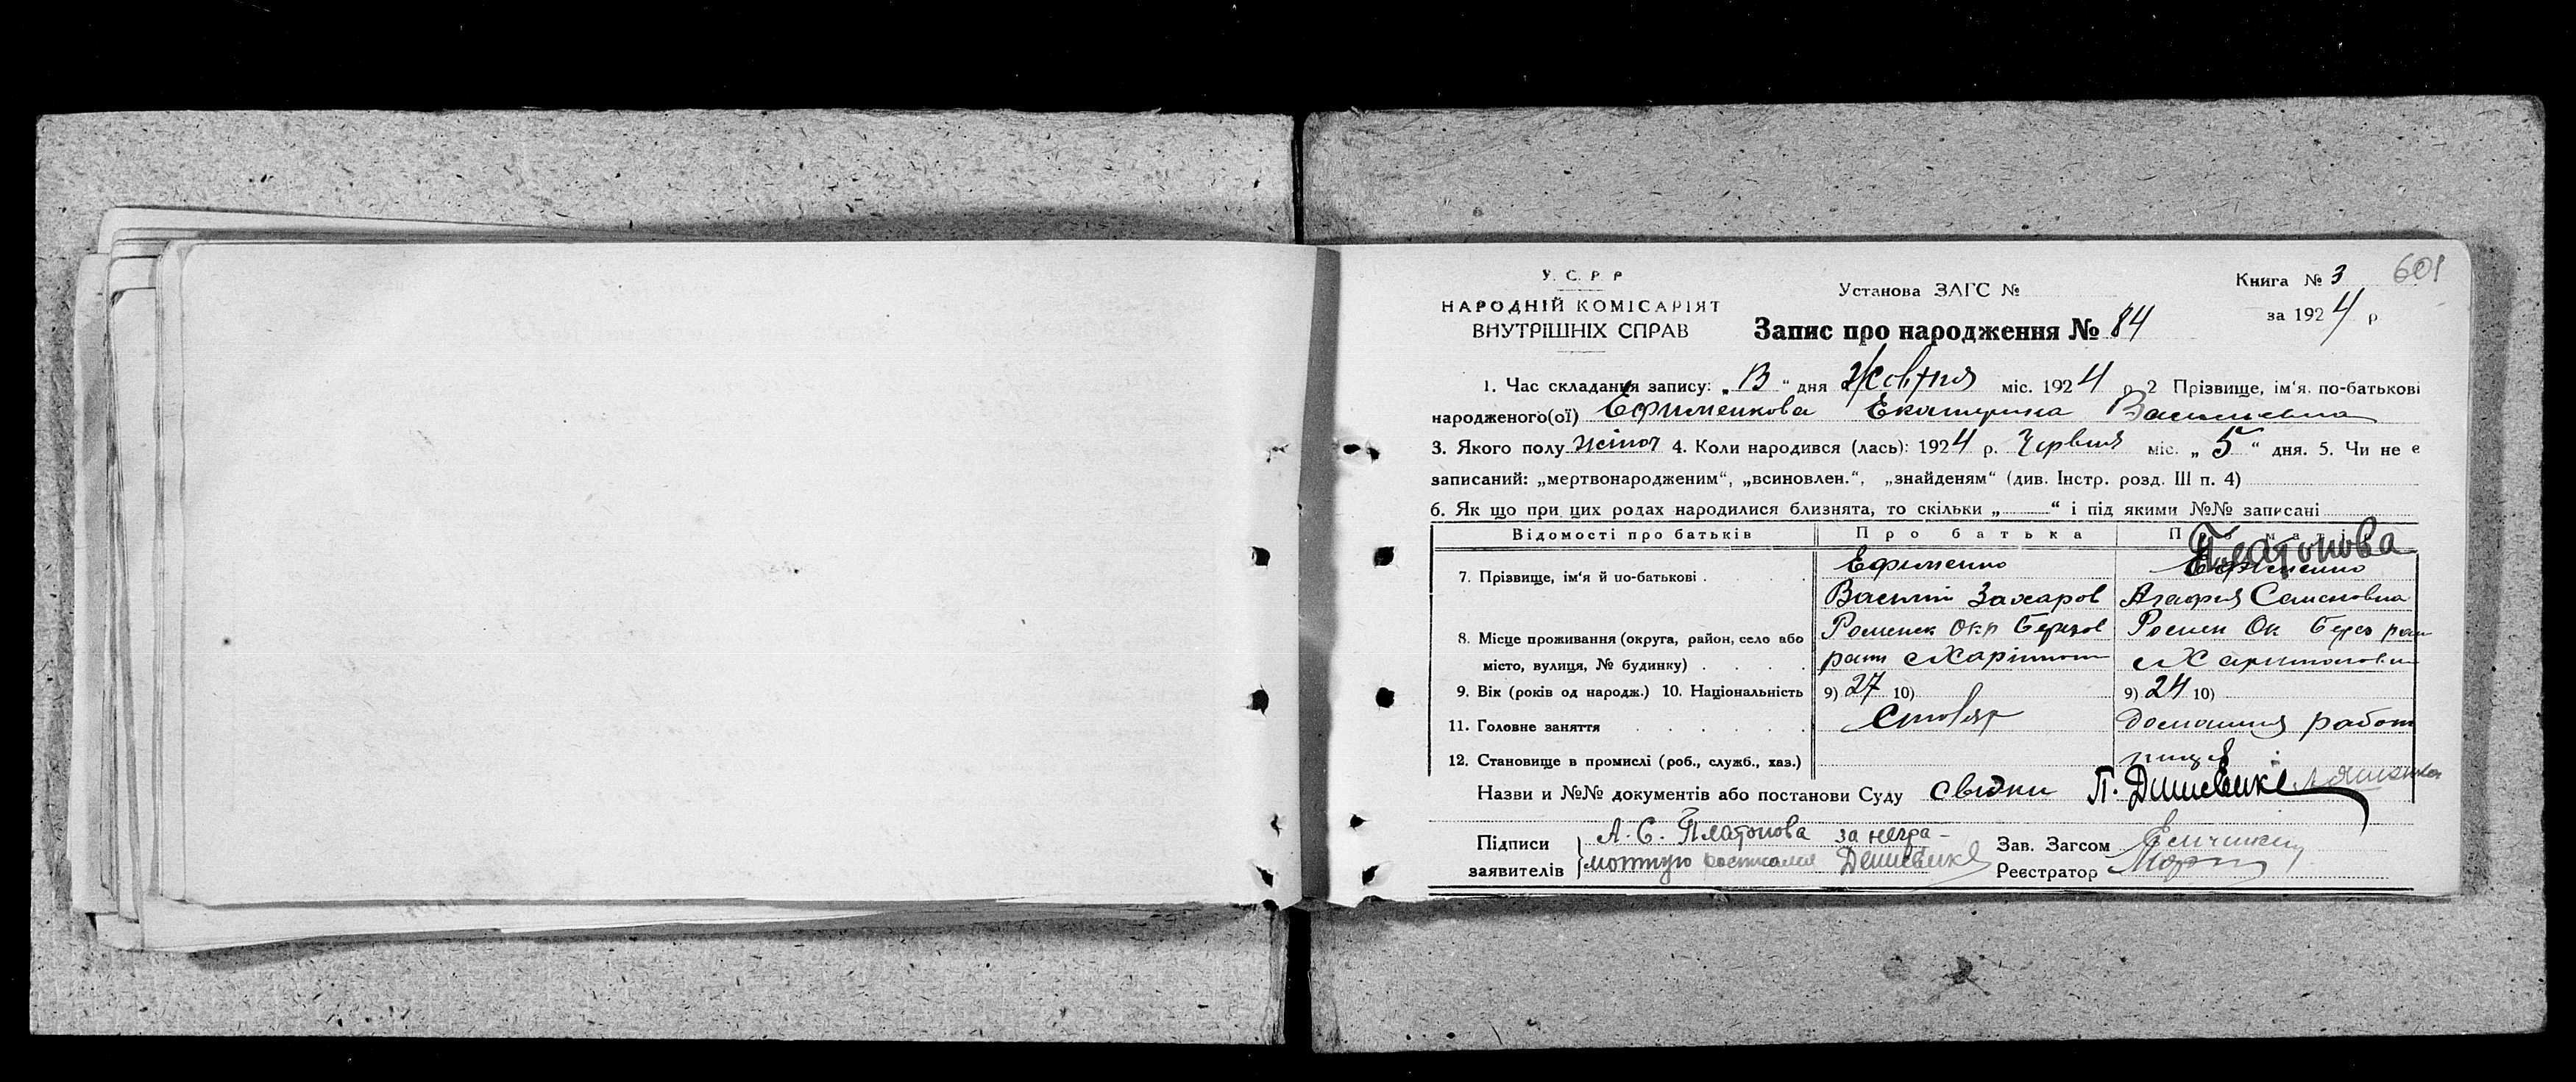 У. С. Р. Р.
НАРОДНІЙ КОМІСАРІЯТ
ВНУТРІШНІХ СПРАВ
Установа ЗАГС №
Запис про народження № 84
Книга № 3
601
за 1924 р
1. Час складання запису: „ 13 “ дня Жовтня міс. 1924 р 2 Прізвище, ім‘я, по-батькові
народженого(ої) Ефименкова Екатерина Васильевна
3. Якого полу жіноч 4. Коли народився (лась): 1924 р. Червня міс. „ 5 “ дня. 5. Чи не є
записаний: „мертвонародженим“, „всиновлен.“, „знайденям“ (див. Інстр. розд. III п. 4)
6. Як що при цих родах народилися близнята, то скільки „ “ і під якими №№ записані
Відомості про батьків Про батька Про матір
Платонова
7. Прізвище, ім‘я й по-батькові Ефименко Ефименко
Василий Захаров Агафия Семеновна
8. Місце проживання (округа, район, село або Роменск Окр Березов Ромен Ок Берез раи
місто, вулиця, № будинку) раи с Харітон с Харитоновки
9. Вік (років од народж.) 10. Національність 9) 27 10) 9) 24 10)
11. Головне заняття Столяр домашняя работ
12. Становище в промислі (роб., служб., хаз.) ница
Назви и №№ документів або постанови Суду свідки П.
Підписи А. С. Платонова за негра-
заявителів мотную
Зав. Загсом
Реєстратор